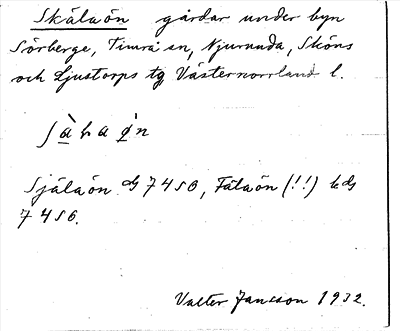 Skälaön gårdar under byn
Sörberge, Timrå sn, Njurunda, Sköns
och Ljustorps tg Västernorrland l.
Själaön db 7456, Fälaön (!!) kdb
7456.
Valter Jansson 1932.